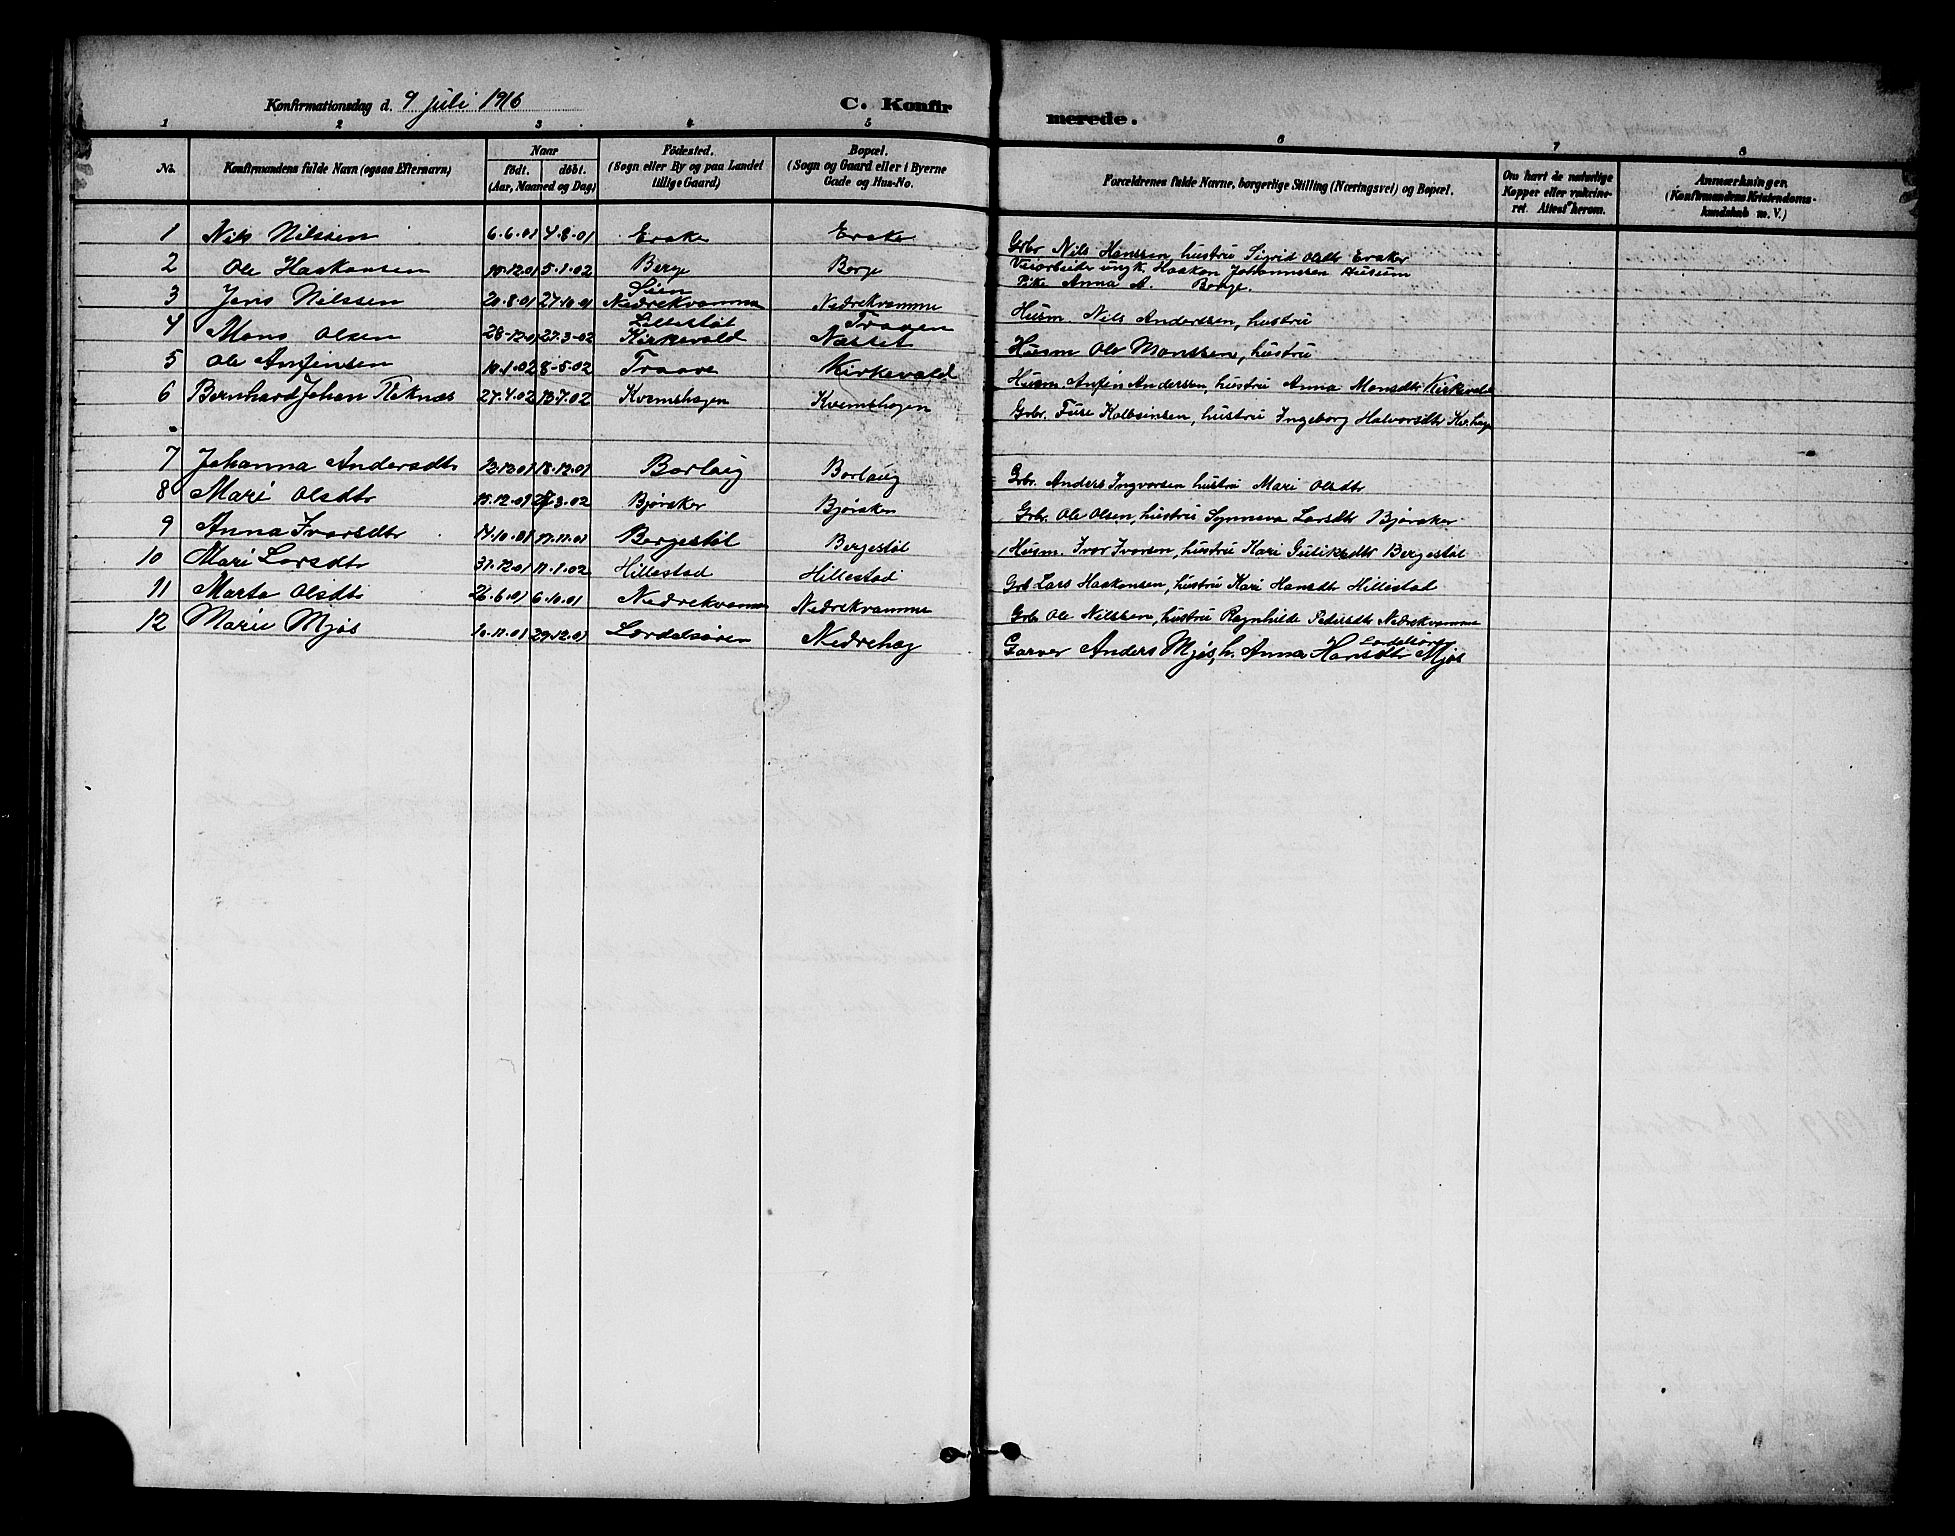 Konfirmationsdag d. 9 juli 1916
C. Konfirmerede.
1 2 3 4 5 6 7 8
No. Konfirmandens fulde Navn (ogsaa Efternavn) Naar födt. döbt. (Aar, Maaned og Dag) Födested. (Sogn eller By og paa Landet tillige Gaard) Bopæl. (Sogn og Gaard eller i Byerne Gade og Hus-No. Forældrenes fulde Navne, borgerlige Stilling (Næringsvei) og Bopæl. Om havt de naturlige Kopper eller vaksineret. Attest herom. Anmærkninger. (Konfirmandens Kristendomskundskab m. V.)
1 Nils Nilssen 6.6.01 4.8.01 Erake Erake Grbr Nils Hanssen, hustru Sigrid Olsdtr Eraker
2 Ole Haakonsen 5.1.02 Berge Berge Veiarbeide ungk. Haakon Johannessen Husum
Pike Anna A. Berge.
3 Jens Nilssen 20.8.01 27.10.01 Nedrekvamme Nedrekvamme Husm Nils Anderssen, hustru
4 Mons Olsen 28.12.01 27.3.02 Lillestöl Kirkevold Traaen Næsset Husm Ole Monssen, hustru
5 Ole Anfinsen 10.1.02 8.5.02 Traave Kirkevold Husm. Anfin Andersen, hustru Anna Monsdtr Kirkevold
6 Bernhard Johan Teknæs 27.4.02 13.7.02 Kvemshagen Kvemshagen Grbr. Kolbeinsen, hustru Ingeborg Halvorsdtr Kv.hag
7 Johanna Andersdtr 12.12.01 18.12.01 Borlaug Borlaug Grbr. Anders Ingvarsen hustru Mari Olsdtr
8 Mari Olsdtr .3.02 Björaker Björaker Grbr. Ole Olsen, hustru Synneva Larsdtr Björaker
9 Anna Ivarsdtr 14.10.01 17.11.01 Bergestöl Bergestöl Husm. Ivar Ivarsen, hustru Kari Gutiksdtr Bergestöl
10 Mari Larsdtr 31.12.01 11.1.02 Hillestad Hillestad Grb Lars Haakonsen, hustru Kari Hansdtr Hillestad
11 Marta Olsdtr 26.6.01 6.10.01 Nedrekvamme Nedrekvamme Grbr Ole Nilssen, hustru Ragnhilde Pedersdtr Nedrekvamme
12 Marie Mjös 10.11.01 29.12.01 Lærdalsören Nedrehag Garver Anders Mjös, h. Anna Hansdtr Mjös